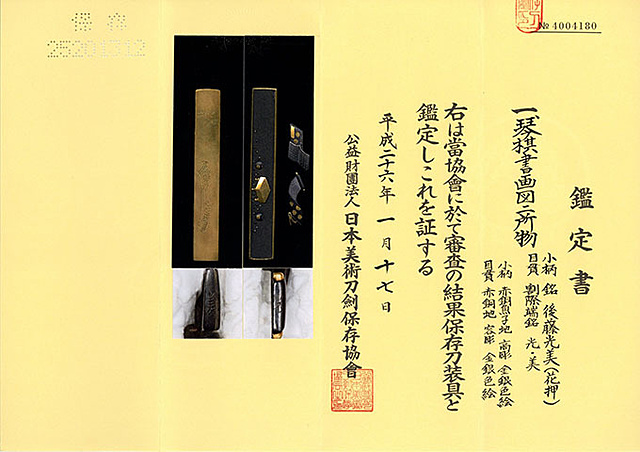 № 4004180
鑑定書
一、琴棋書画図二所物
小柄 銘 後藤光美(花押)
目貫 割際端銘 光・美
小柄 赤銅魚子地 高彫 金銀色絵
目貫 赤銅地 容彫 金銀色絵
右は當協會に於て審査の結果保存刀装具と
鑑定しこれを証する
平成二十六年一月十七日
公益財團法人 日本美術刀劍保存協會
保存